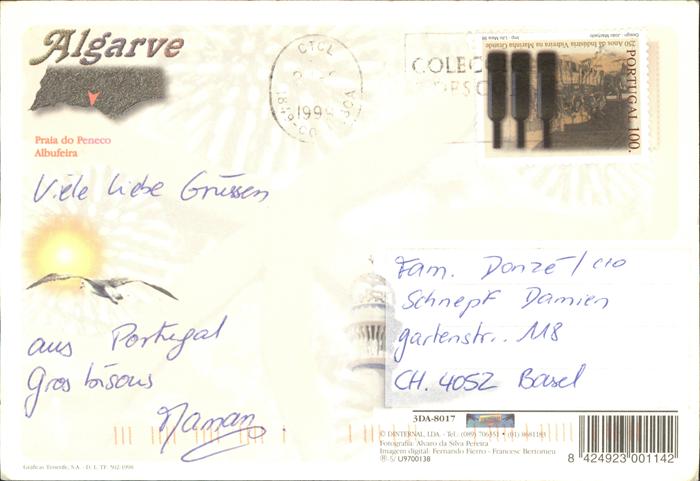 Algarve
Praia do Peneco
Albufeira
Viele liebe Grüssen
aus Portugal
Gros bisous
Maman
CTCL
1998
COLEC
Design - João Machado
Imp - Lito Maia 98
250 Anos da Indústria Vidreira na Marinha Grande
PORTUGAL 100.
Fam. Donzé / c/o
Schnepf Damien
gartenstr.. 118
CH. 4052 Basel
3DA-8017
© DINTERNAL, LDA. - Tel.: (089) 706351 • (01) 8681183
Fotografia: Alvaro da Silva Pereira
Imagem digital: Fernando Fierro - Francesc Bertomeu
®-5/ U9700138
8 424923 001142
Gráficas Tenerife, S.A. - D. L. TF. 502-1998